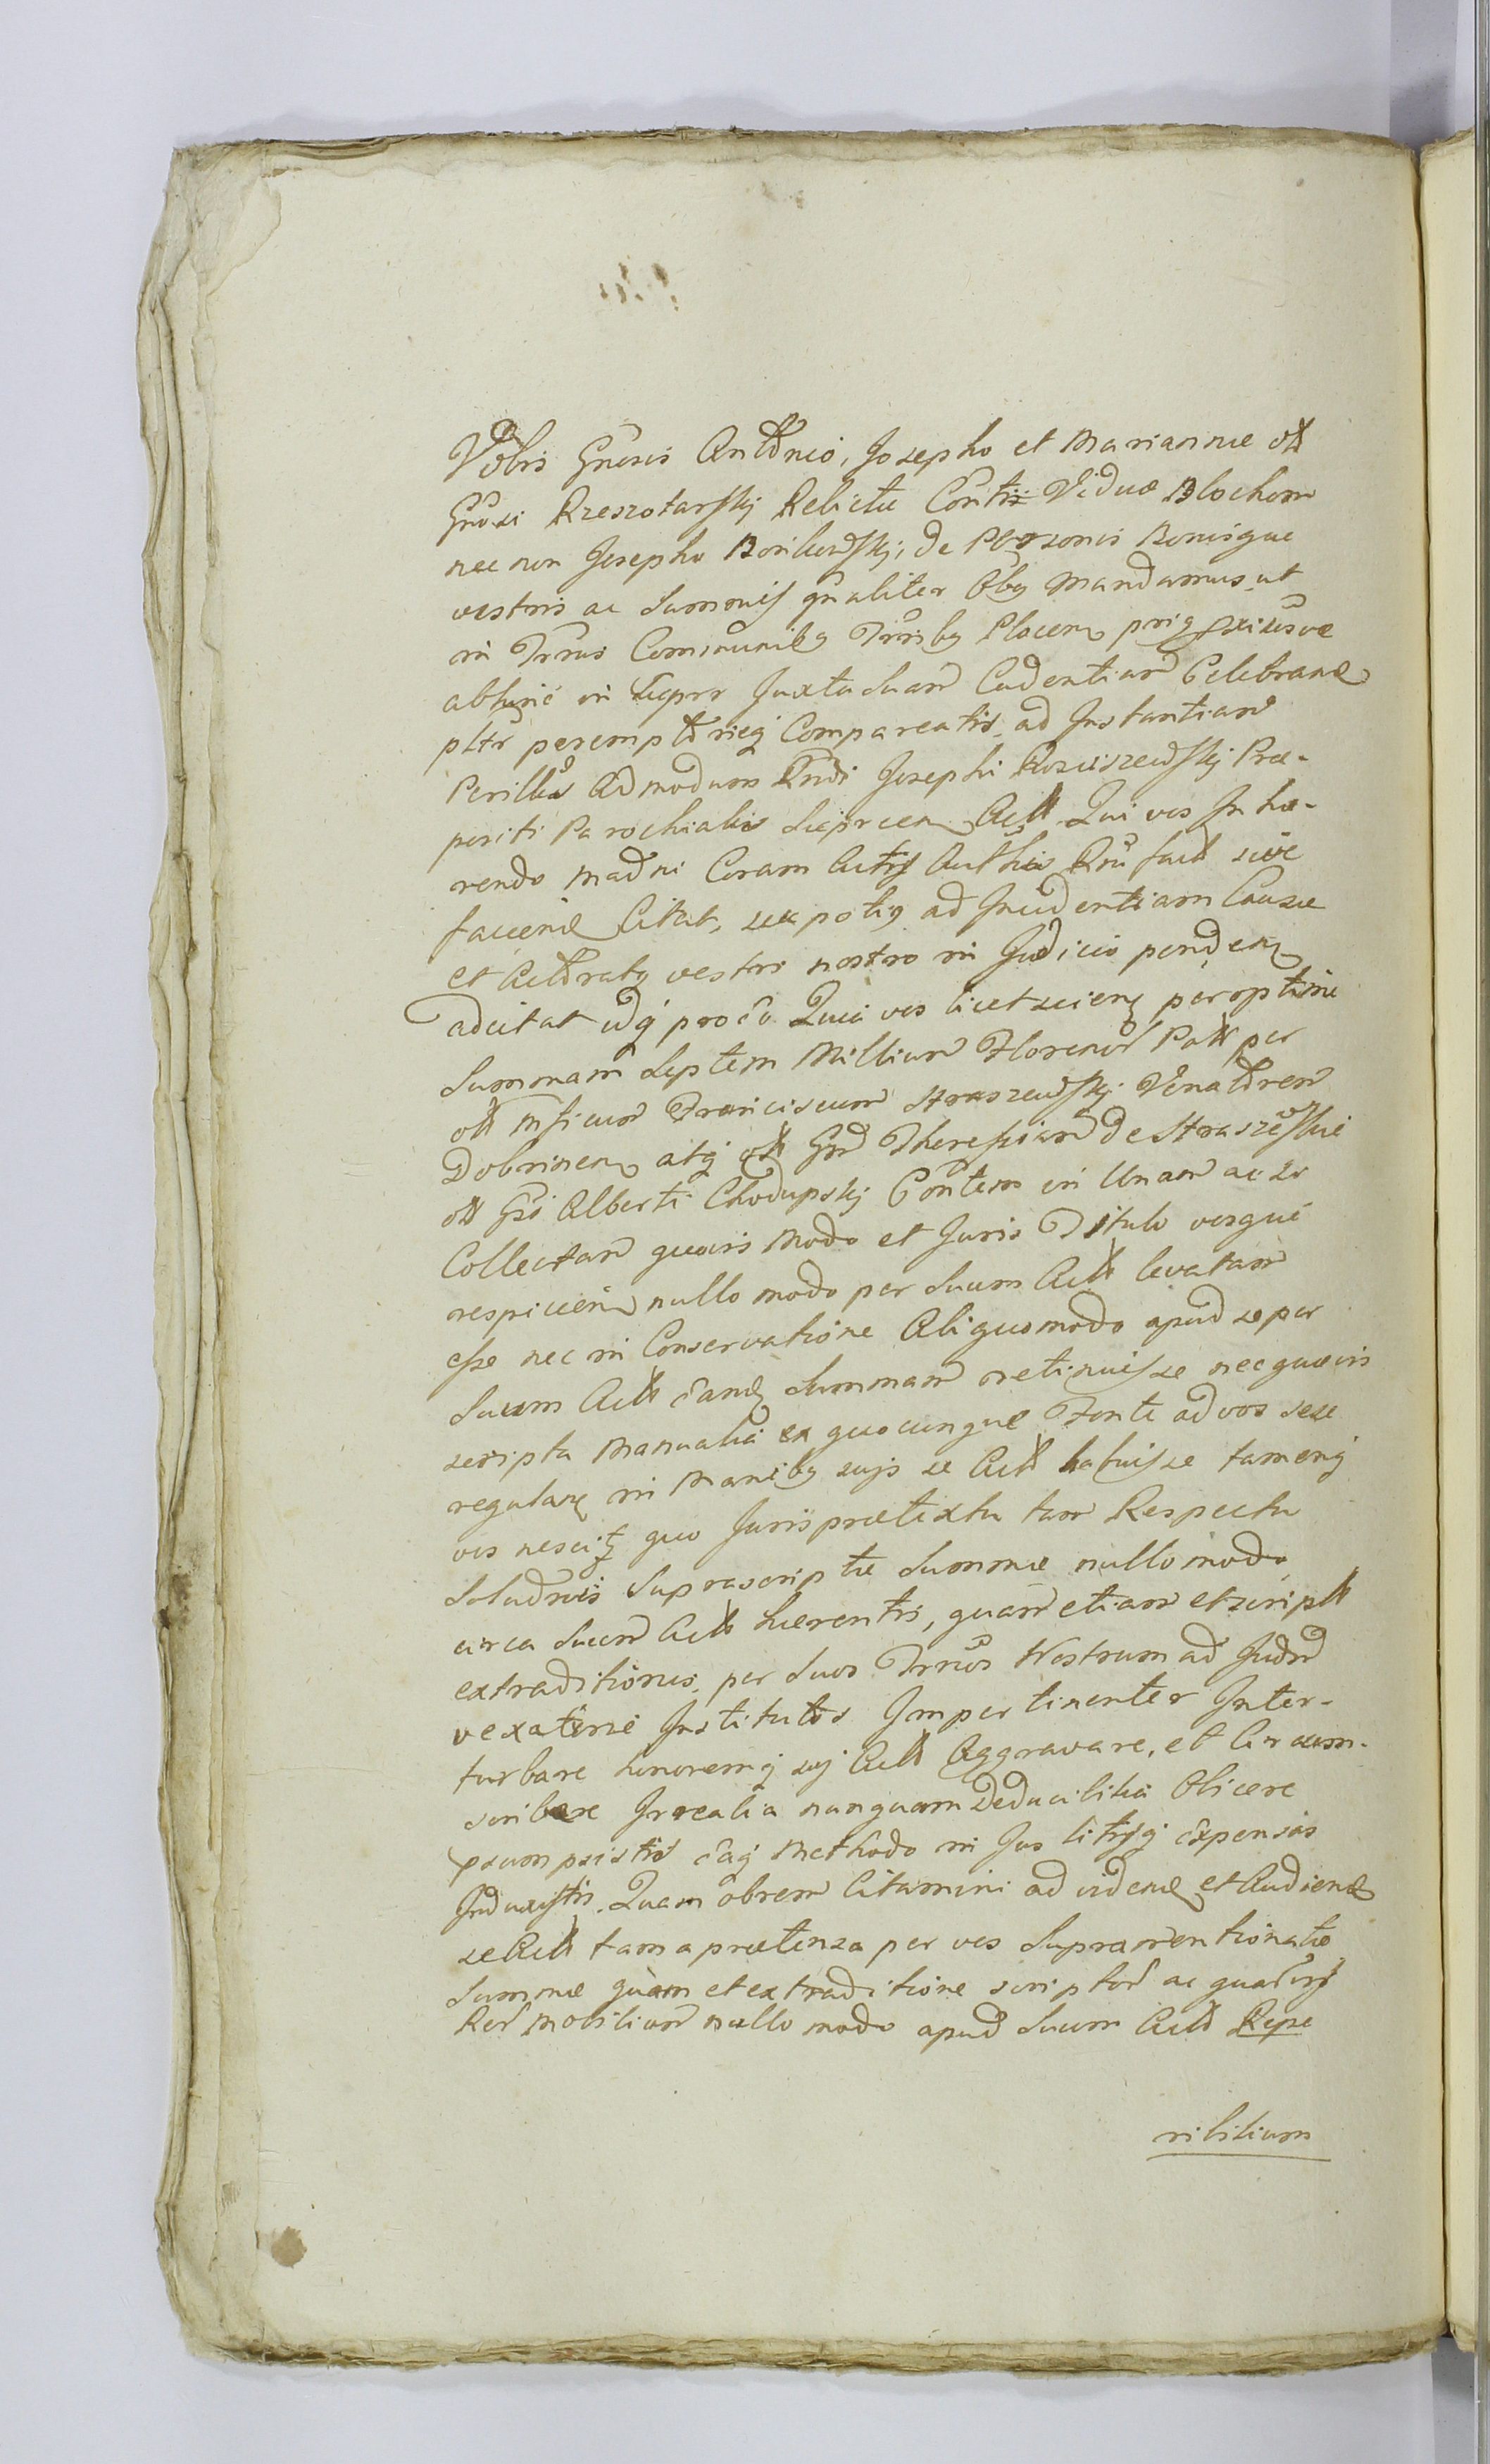 Vobis Gnosis Antonio, Josepho et Mariannæ olt
Gnosi Rzeszotarskj Relictæ Contis Viduæ Blochom
nec non Josepho Borikowskj, de Personis Bonisque
vestris ac Summis gnaliter Obq Mandamus, ut
in Trnis Communibq Trrisbq Plocen priq
abhinc in Lieprr Juxta suam Cadentiam Celebrand
pltr peremptorieq Compareatis, ad Instantiam
Perillus Admodum Rndi Josephi Rosciszewskj Præ-
positi Parochialis Lieprcen Actt. Qui vos Inhæ-
rendo madni Coram Actis Authen Rm fact sive
faciend Citat, seu potiq ad Incidentiam Causæ
et Actoratq vestri nostro in Judicio penden
adcitat idq pro eo Quia vos licet scien peroptime
Summam Septem Millium Florenor Poll per
olt Mficum Franciscum Straszewskj Venatorem
Dobrinen atq olt Gnd Theressiam de Straszewskie
olt Gsi Alberti Chodupskj Contem in Unam ac
Collectam quovis modo et Juris Titulo vosque
respicien nullo modo per Suum Actt levatam
esse nec in Conservatione Aliquomodo apud se per
Suum Actt eand Summam retinuisse nec quævis
scripta Manualia ex quocunque Fonte ad vos sese
regulan in Manibq sujs se Actt habuisse tamenq
vos nescitq quo Juris prætextu tam Respectu
Solutionis Suprascriptæ Summæ nullo modo
circa Suum Actt hærentis, quam etiam et script
extraditionis, per Suos Trnos Nostrum ad Judm
vexatorie Institutos Impertinenter Inter-
turbare honoremq suj Actt Aggravare, et Circum-
scribere Irrealia nunquam Deducibilia Obiicere
præsumpsistis eaq Methodo in Jus litisq expensas
Induxistis. Quam obrem Citamini ad vidend et Audiend
se Actt tam a prætensa per vos Supramentionatæ
Summæ quam et extraditione scriptor ac quarvis
Rer Mobilium nullo modo apud Suum Actt Repe
ribilium